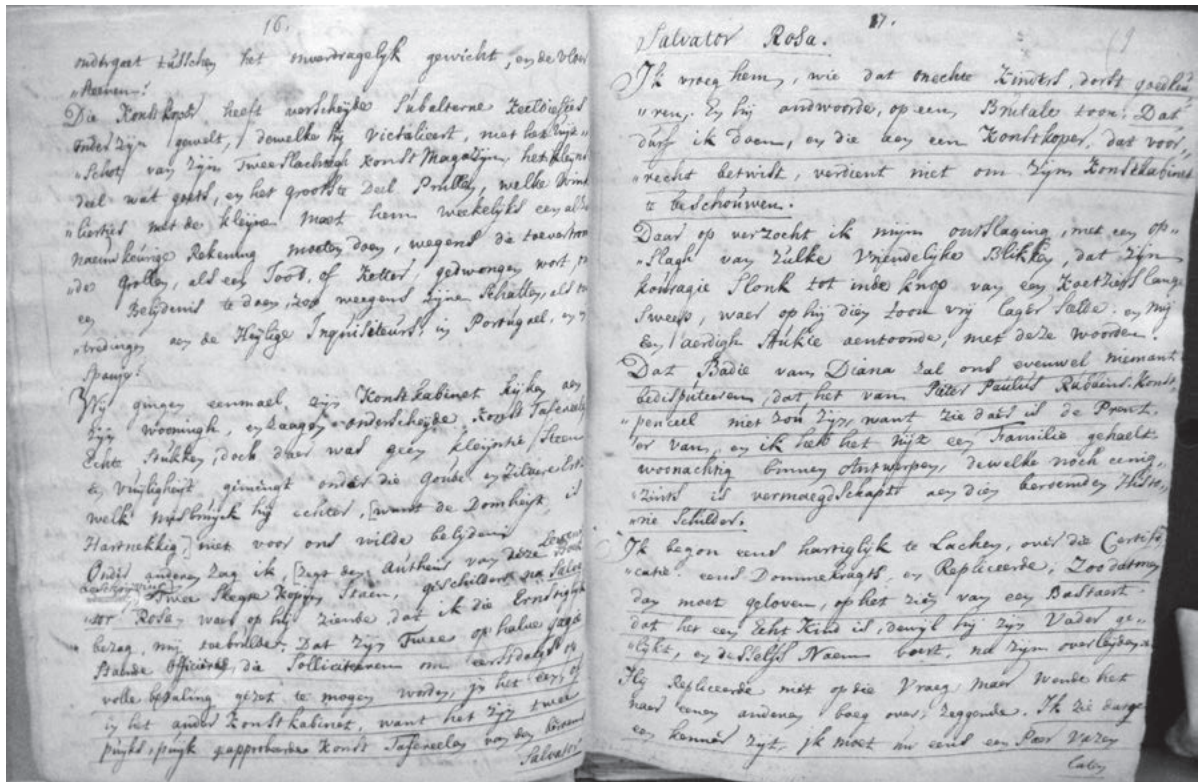 16.
ondergaet tusschen het onverdragelyk gewicht, en de vloer
"steenen!
Die Konstkoper heeft verscheyde Subalterne
onder zyn gewelt, dewelke hy victalieert, met het
"schot van zyn Tweeslachtigh Konst Magazyn, het kleyns
deel wat goets, en het grootste Deel Prullen, welke
met de kleyne Maet hem weekelyks een
naeuwkeurige Rekening moeten doen, wegens die
"de Grollen, als een Joot, of Ketter, gedwongen wort,
een Belydenis te doen, zoo weegens zyne Schatten, als
"tredingen aen de Heylige Inquisiteurs, in Portugael, en
Spanje!
Wy gingen eenmael, zyn Konstkabinet kyken aen
zyn wooningh, en zaagen onderscheyde Konst Tafereelen
Echte Stukken, doch daer was geen kleyntie
en vuyligheyt gemingt onder die Goude en Zilvere
welk hy echter, [want de Domheyt is
Hartnekkig] niet voor ons wilde belyden
Onder anderen zag ik, [zegt den Autheur van deze Levens
Twee slegte Kopyen staen, geschildert na Salva
"tor Rosa, waer op hy ziende, dat ik die Ernstiglyk
bezag, my toebrulde: Dat zyn Twee op halve gagie
staende Officieren, die Solliciteeren om eerstdaags op
volle betaling gezet te mogen worden, in het een of
in het ander Konstkabinet, want het zyn twee
puyks, puyk geapprobeerde Konst Tafereelen van den
Salvator
17.
Salvator Rosa.
Ik vroeg hem, wie dat onechte Kinders, dorst
"ren, En hy andwoorde, op een Brutale toon: Dat
durf ik doen, en die aen een Konstkoper, dat voor"
"recht betwist, verdient niet om zyn Konstkabinet
te beschouwen.
Daar op verzocht ik myn ontslaging, met een op"
"slagh van zulke vriendelyke Blikken, dat zyn
kouragie slonk tot in de knop van een Koetsiers lange
Sweep, waer op hy dien toon vry lager stelde, en my
een aerdigh stukie aentoonde, met deze woorden.
Dat Badie van Diana zal ons evenwel niemant
bedisputeeren, dat het van Pater Paulus Rubbens Konst
"penceel niet zou zyn, want zie daer is de Prent
er van, en ik heb het uyt een Familie gehaelt
woonachtig binnen Antwerpen, dewelke noch eenig"
"zints is vermaegdschapt aen dien beroemden Histo"
"rie Schilder.
Ik begon eens hartiglyk te Lachen, over die Certifi"
"catie eens Dommekragts, en Repliceerde, Zoo datmen
dan moet geloven, op het zien van een Bastaert
dat het een Echt Kind is, dewyl hy zyn Vader ge"
"lykt, en deszelfs Naem voert, na zyn overlyden.
Hy Repliceerde niet op die Vraeg maer wende het
naer eenen anderen boeg over, zeggende. Ik zie dat ge
een kenner zyt, ik moet uw eens een Paer Vazen
laten